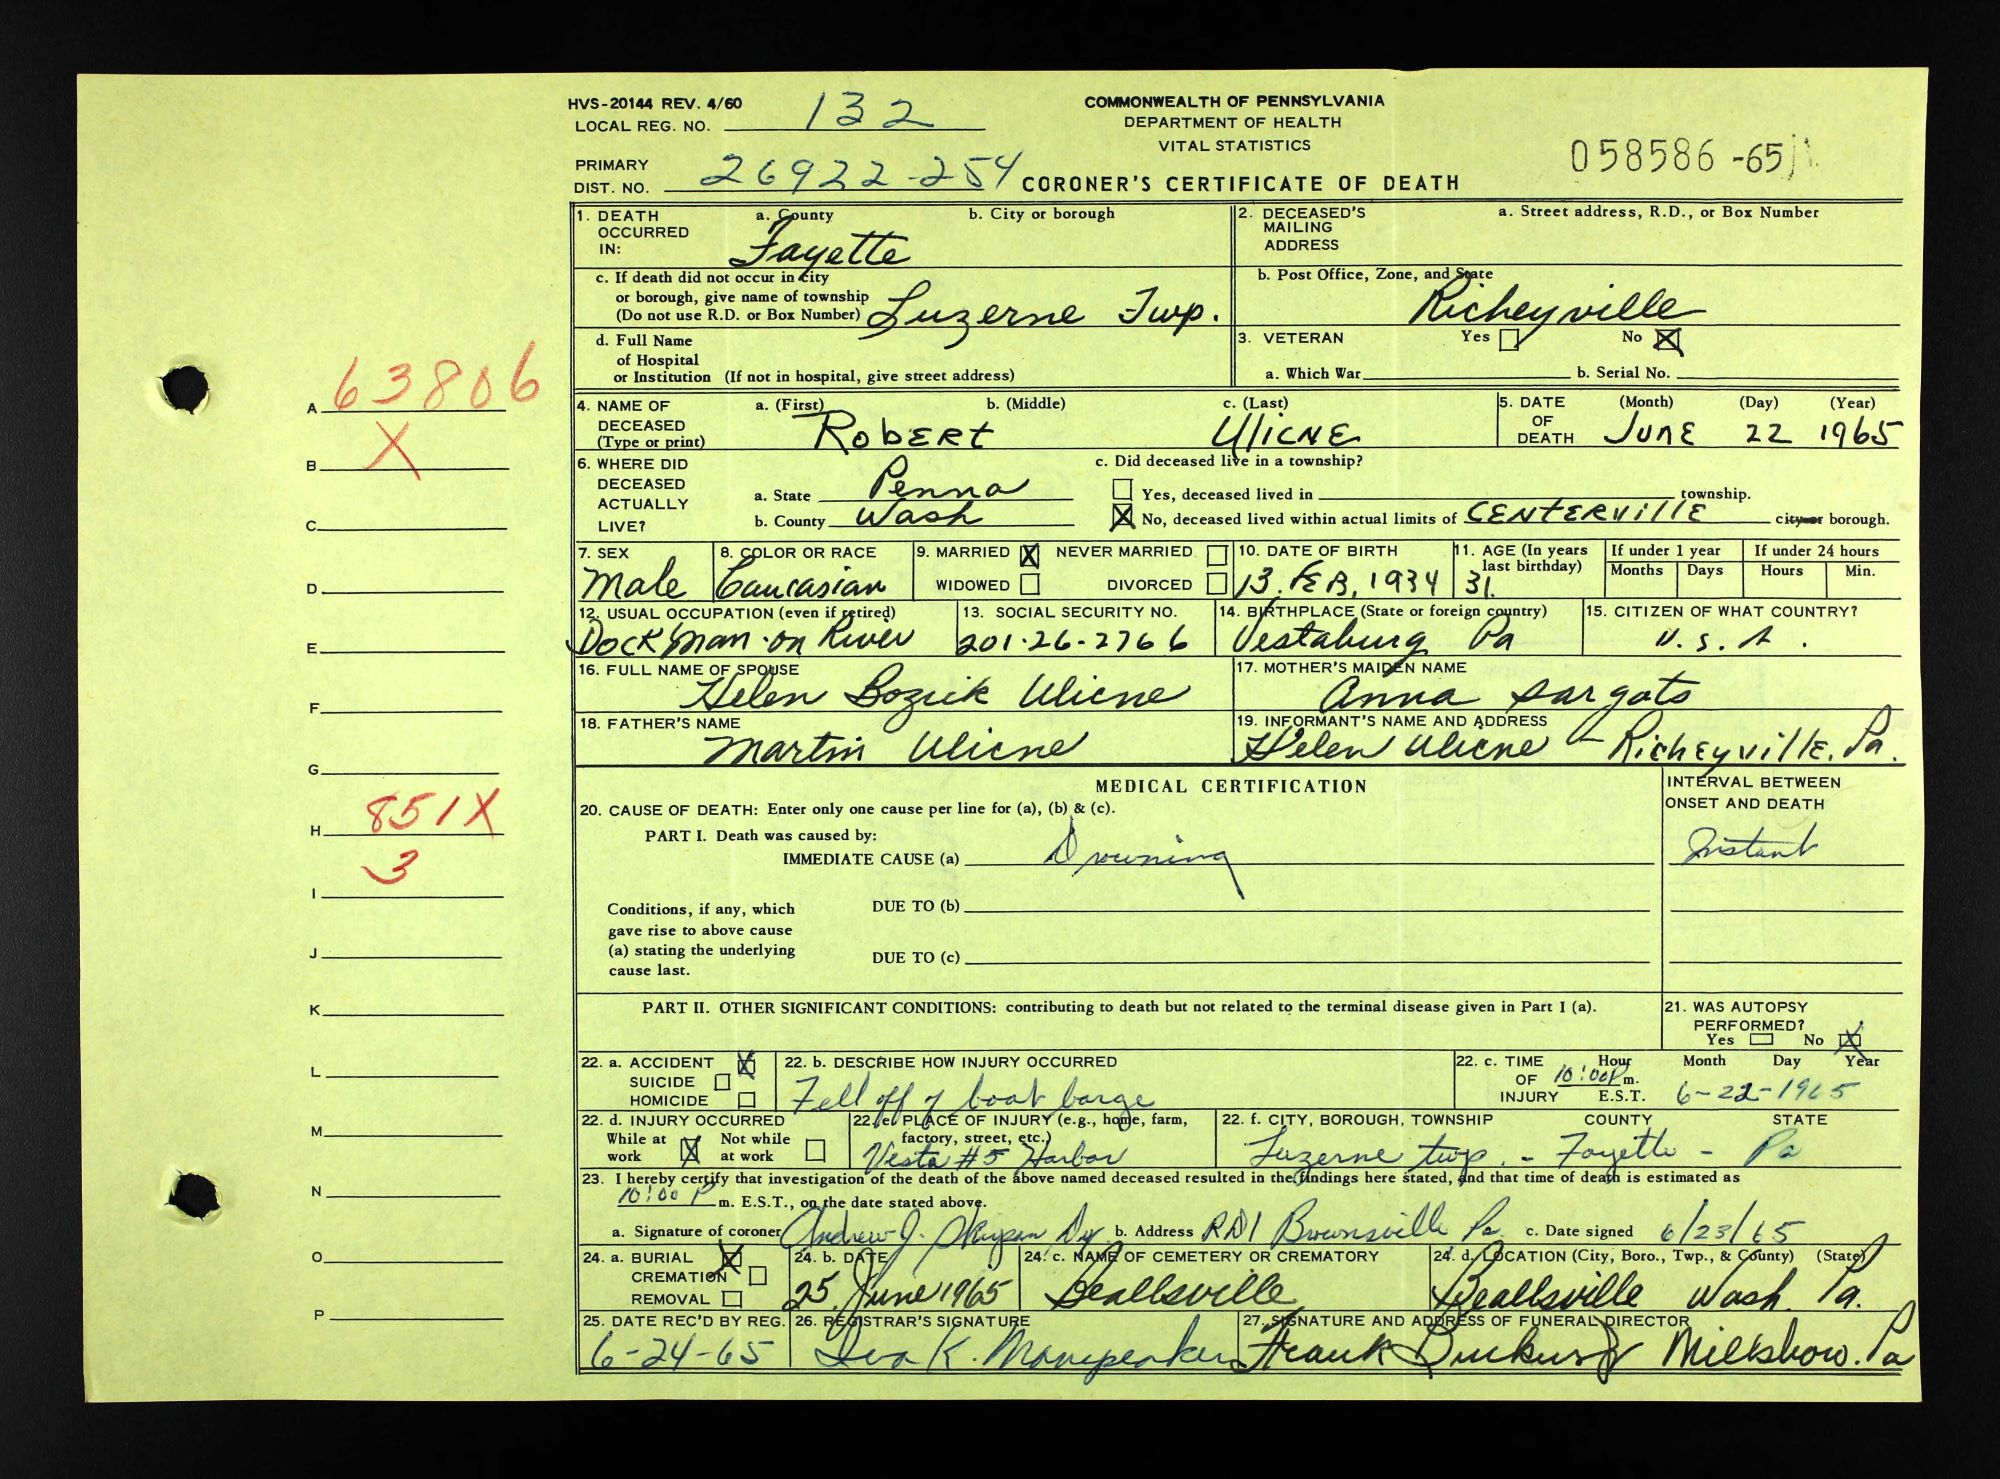 HVS-20144 REV. 4/60
LOCAL REG. NO. 132
PRIMARY
DIST. NO. 26922-254
COMMONWEALTH OF PENNSYLVANIA
DEPARTMENT OF HEALTH
VITAL STATISTICS
CORONER'S CERTIFICATE OF DEATH
058586-65
1. DEATH OCCURRED IN: a. County Fayette b. City or borough
c. If death did not occur in city
or borough, give name of township
(Do not use R.D. or Box Number) Luzerne Twp.
d. Full Name
of Hospital
or Institution (If not in hospital, give street address)
2. DECEASED'S MAILING ADDRESS a. Street address, R.D., or Box Number
b. Post Office, Zone, and State
Richeyville
3. VETERAN Yes No X
a. Which War b. Serial No.
4. NAME OF DECEASED (Type or print) a. (First) Robert b. (Middle) c. (Last) Ulicne
5. DATE OF DEATH (Month) (Day) (Year)
June 22 1965
6. WHERE DID DECEASED ACTUALLY LIVE?
a. State Penna
b. County Wash
c. Did deceased live in a township?
Yes, deceased lived in township.
X No, deceased lived within actual limits of Centerville city or borough.
7. SEX Male
8. COLOR OR RACE Caucasian
9. MARRIED X NEVER MARRIED
WIDOWED DIVORCED
10. DATE OF BIRTH 13. FEB, 1934
11. AGE (In years last birthday) 31.
If under 1 year Months Days
If under 24 hours Hours Min.
12. USUAL OCCUPATION (even if retired)
Dock man on River
13. SOCIAL SECURITY NO.
201-26-2766
14. BIRTHPLACE (State or foreign country)
Vestaburg Pa
15. CITIZEN OF WHAT COUNTRY?
U.S.A.
16. FULL NAME OF SPOUSE
Helen Bozik Ulicne
17. MOTHER'S MAIDEN NAME
Anna Sargots
18. FATHER'S NAME
Martin Ulicne
19. INFORMANT'S NAME AND ADDRESS
Helen Ulicne - Richeyville, Pa.
MEDICAL CERTIFICATION
20. CAUSE OF DEATH: Enter only one cause per line for (a), (b) & (c).
PART I. Death was caused by:
IMMEDIATE CAUSE (a) Drowning
INTERVAL BETWEEN
ONSET AND DEATH
Instant
Conditions, if any, which
gave rise to above cause
(a) stating the underlying
cause last.
DUE TO (b)
DUE TO (c)
PART II. OTHER SIGNIFICANT CONDITIONS: contributing to death but not related to the terminal disease given in Part I (a).
21. WAS AUTOPSY
PERFORMED?
Yes No X
22. a. ACCIDENT X
SUICIDE
HOMICIDE
22. b. DESCRIBE HOW INJURY OCCURRED
Fell off of boat barge
22. c. TIME OF INJURY Hour Month Day Year
10:00 P m. E.S.T. 6-22-1965
22. d. INJURY OCCURRED
While at work X Not while at work
22. e. PLACE OF INJURY (e.g., home, farm,
factory, street, etc.)
Vesta #5 Harbor
22. f. CITY, BOROUGH, TOWNSHIP COUNTY STATE
Luzerne twp. - Fayette - Pa
23. I hereby certify that investigation of the death of the above named deceased resulted in the findings here stated, and that time of death is estimated as
10:00 P m. E.S.T., on the date stated above.
a. Signature of coroner Andrew J. b. Address RD1 Brownsville Pa c. Date signed 6/23/65
24. a. BURIAL X
CREMATION
REMOVAL
24. b. DATE
25 June 1965
24. c. NAME OF CEMETERY OR CREMATORY
Beallsville
24. d. LOCATION (City, Boro., Twp., & County) (State)
Beallsville Wash. Pa.
25. DATE REC'D BY REG.
6-24-65
26. REGISTRAR'S SIGNATURE
K.
27. SIGNATURE AND ADDRESS OF FUNERAL DIRECTOR
Frank Millsboro. Pa
A 63806
B X
C
D
E
F
G
H 851X
3
I
J
K
L
M
N
O
P